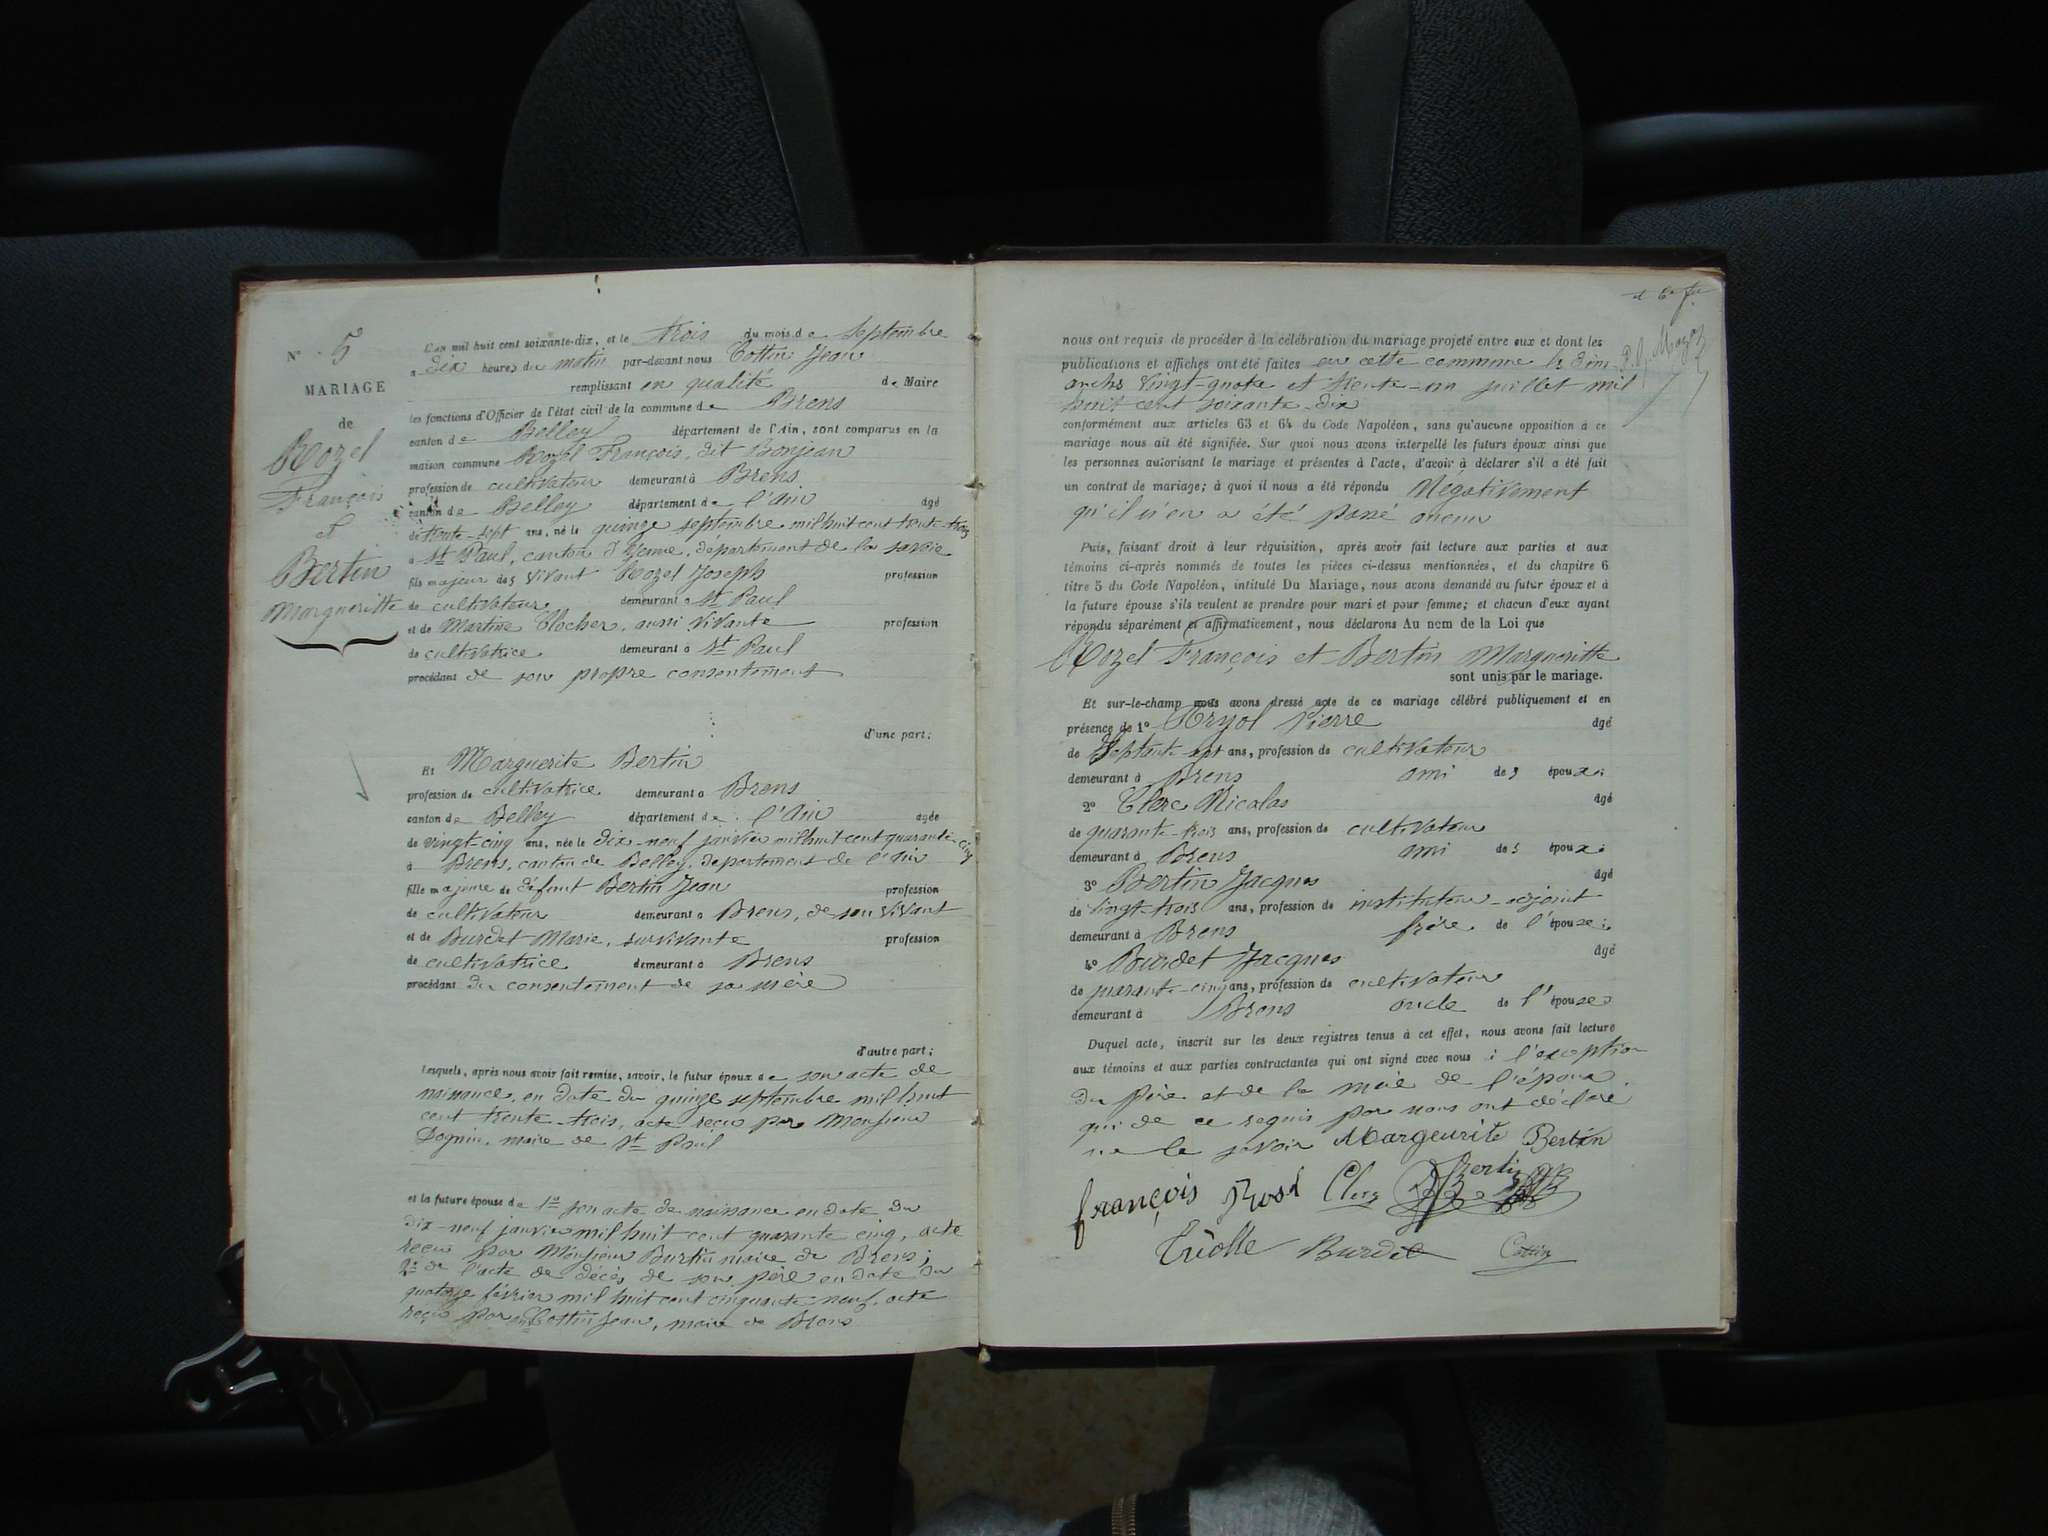 N° 5
MARIAGE
de
Rozel
François
et
Bertin
Margueritte
L'an mil huit cent soixante-dix, et le trois du mois de septembre
a dix heures du matin par-devant nous Cottin Jean
remplissant en qualité de Maire
les fonctions d'Officier de l'état civil de la commune de Brens
canton de Belley département de l'Ain, sont comparus en la
maison commune Rozel François, dit Bonjean
profession de cultivateur demeurant à Brens
canton de Belley département de l'Ain agé
de trente-sept ans, né le quinze septembre mil huit cent trente-trois
a St Paul, canton d'Yenne, département de la Savoie
fils majeur des vivant Rozel Joseph profession
de cultivateur demeurant a St Paul
et de Martine Clocher, aussi vivante profession
de cultivatrice demeurant à St Paul
procédant de son propre consentement
d'une part;
Et Marguerite Bertin
profession de cultivatrice demeurant a Brens
canton de Belley département de l'Ain agée
de vingt-cinq ans, née le dix-neuf janvier mil huit cent quarante-cinq
à Brens, canton de Belley, département de l'Ain
fille majeure de défunt Bertin Jean profession
de cultivateur demeurant a Brens, de son vivant
et de Burdet Marie, survivante profession
de cultivatrice demeurant à Brens
procédant du consentement de sa mère
d'autre part;
Lesquels, après nous avoir fait remise, savoir, le futur époux de son acte de
naissance, en date du quinze septembre mil huit
cent trente-trois, acte reçu par Monsieur
Dognin, maire de St Paul
et la future épouse de 1° son acte de naissance en date du
dix-neuf janvier mil huit cent quarante cinq, acte
reçu par Monsieur Burtin maire de Brens;
2° de l'acte de décès de son père en date du
quatorze février mil huit cent cinquante-neuf, acte
reçu par Cottin Jean, maire de Brens
nous ont requis de procéder à la célébration du mariage projeté entre eux et dont les
publications et affiches ont été faites en cette commune les dim-
anches vingt-quatre et trente-un juillet mil
huit cent soixante-dix
conformément aux articles 63 et 64 du Code Napoléon, sans qu'aucune opposition à ce
mariage nous ait été signifiée. Sur quoi nous avons interpellé les futurs époux ainsi que
les personnes autorisant le mariage et présentes à l'acte, d'avoir à déclarer s'il a été fait
un contrat de mariage; à quoi il nous a été répondu Négativement
qu'il n'en a été passé aucun
Puis, faisant droit à leur réquisition, après avoir fait lecture aux parties et aux
témoins ci-après nommés de toutes les pièces ci-dessus mentionnées, et du chapitre 6
titre 5 du Code Napoléon, intitulé Du Mariage, nous avons demandé au futur époux et à
la future épouse s'ils veulent se prendre pour mari et pour femme; et chacun d'eux ayant
répondu séparément et affirmativement, nous déclarons Au nom de la Loi que
Rozel François et Bertin Margueritte
sont unis par le mariage.
Et sur-le-champ nous avons dressé acte de ce mariage célébré publiquement et en
présence de 1° Pierre agé
de septante-sept ans, profession de cultivateur
demeurant à Brens ami des époux;
2° Clerc Nicolas agé
de quarante-trois ans, profession de cultivateur
demeurant à Brens ami des époux;
3° Bertin Jacques agé
de vingt-trois ans, profession de instituteur-adjoint
demeurant à Brens frère de l'épouse;
4° Burdet Jacques agé
de quarante-cinq ans, profession de cultivateur
demeurant à Brens oncle de l'épouse
Duquel acte, inscrit sur les deux registres tenus à cet effet, nous avons fait lecture
aux témoins et aux parties contractantes qui ont signé avec nous à l'exception
du père et de la mère de l'époux,
qui de ce requis par nous ont déclaré
ne le savoir Margeurite Bertin
françois Rosel Clerc Bertin
Burdet Cottin